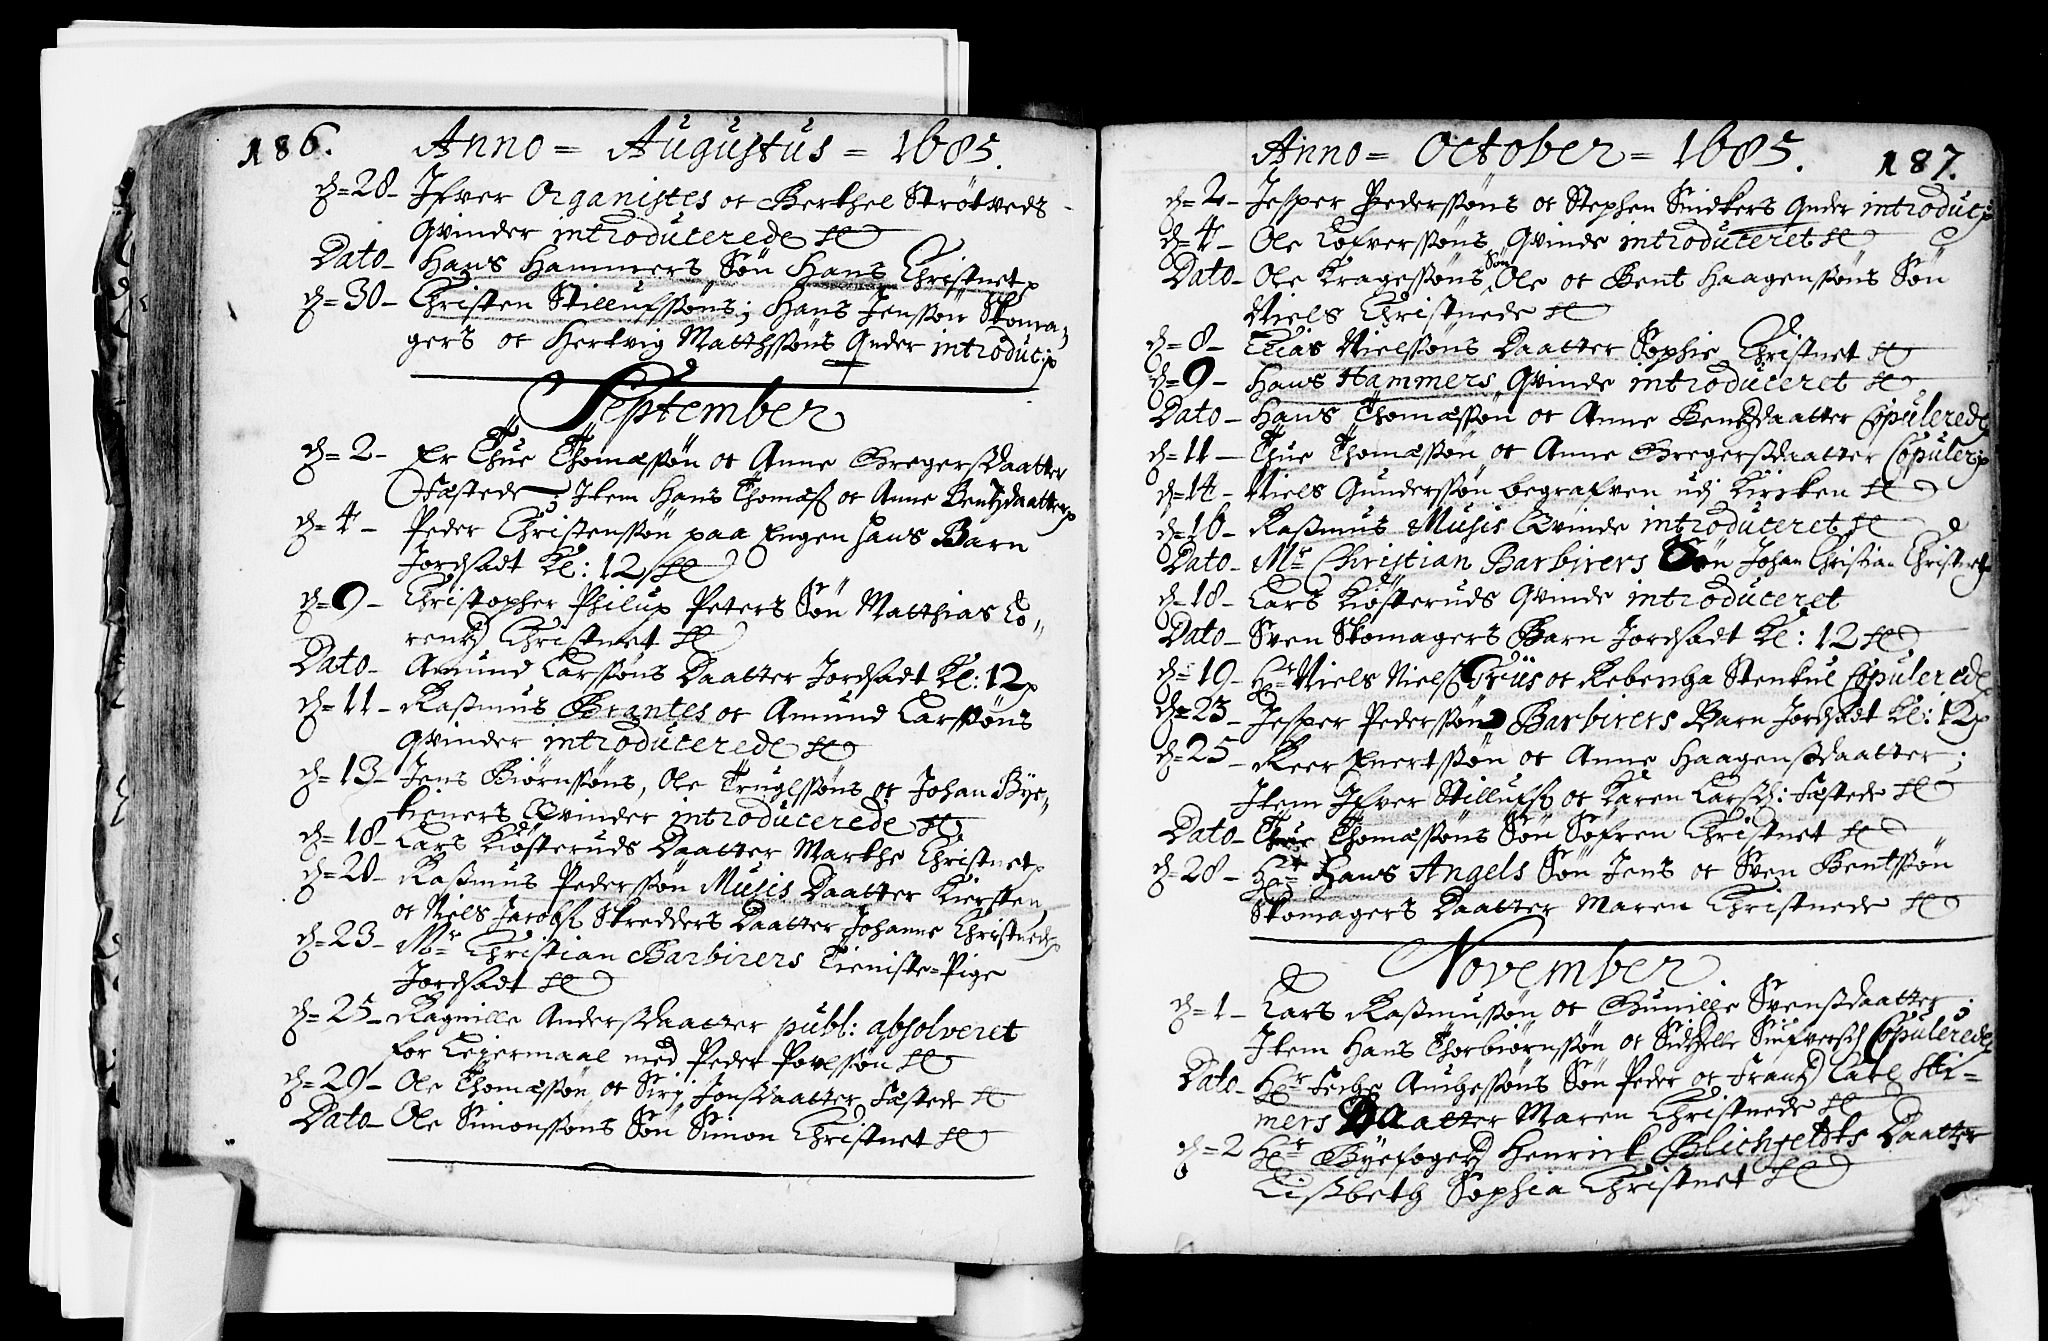 186. Anno = Augustus = 1685.
d = 28 - Ifver Organistes oc Berthel Strøtveds
Qvinder introducerede
Dato - Hans Hammers Søn Hans Christnet
d = 30 - Christen Stillufssøns; Hans Jenssøn Skoma,,
gers oc Hertvig Matthssøns Qnder introduc:
September
d = 2 - Er Thue Thomæssøn oc Anne Gregerssdaatter
Fæstede; Item Hans Thomæss oc Anne Bentzdaatter
d = 4 - Peder Christenssøn paa Engen hans Barn
Jordsadt Kl: 12
d = 9 - Christopher Philup Peters Søn Matthias Lo,,
rentz Christnet
Dato - Amund Larssøns Daatter Jordsadt Kl: 12
d = 11 - Rassmus Brantes oc Amund Larssøns
Qvinder introducerede
d = 13 - Jens Biørnssøns, Ole Truglssøns oc Johan Bye,,
tieners Qvinder introducerede
d = 18 - Lars Kiøsteruds Daatter Marthe Christnet
d = 20 - Rassmus Pederssøn Musis Daatter Kiersten
oc Niels Jacobss Skredders Daatter Johanne Christnede
d = 23 - Mr Christian Barbirers Tieniste = Pige
Jordsadt
d = 25 - Ragnille Anderssdaatter publ: absolveret
for Leiermaal med Peder Povlssøn
d = 29 - Ole Thomæssøn oc Sirj Jonssdaatter Fæstede
Dato - Ole Simonssøns Søn Simon Christnet
Anno = October = 1685. 187.
d = 2 - Jesper Pederssøns oc Stephen Snidkers Qnder introduc:
d = 4 - Ole Lofverssøns Qvinde introduceret
Dato - Ole Kragessøns Søn Ole oc Bent Haagenssøns Søn
Niels Christnede
d = 8 - Elias Nielssøns Daatter Sophie Christnet
d = 9 - Hans Hammers Qvinde introduceret
Dato - Hans Thomæssøn oc Anne Bentzdaatter Copulerede
d = 11 - Thue Thomæssøn oc Anne Gregerssdaatter Copuler:
d = 14 - Niels Gunderssøn begrafven udj Kircken
d = 16 - Rassmus Musis Qvinde introduceret
Dato - Mr Christian Barbirers Søn Johan Christian Christnet
d = 18 - Lars Kiøsteruds Qvinde introduceret
Dato - Sven Skomagers Barn Jordsadt Kl: 12
d = 19 - Hr Niels Nielss Friis oc Rebencha Stenkul Copulerede
d = 23 - Jesper Pederssøn Barbirers Barn Jordsadt Kl: 12
d = 25 - Reer Evertssøn oc Anne Haagenssdaatter;
Item Ifver Stillufss oc Karen Larsd: Fæstede
Dato - Thue Thomæssøns Søn Søfren Christnet
d = 28 - Hr Hans Angels Søn Jens oc Sven Bentssøn
Skomagers Daatter Maren Christnede
November
d = 1 - Lars Rassmussøn oc Gunille Svenssdaatter;
Item Hans Thorbiørnssøn oc Sidselle Siufversd Copulerede
Dato - Hr Auchessøns Søn Peder oc Frantz Carl Ski =
mers Daatter Maren Christnede
d = 2 Hr Byefoged Henrick Blichfeldts Daatter
Lissbeth Sophia Christnet